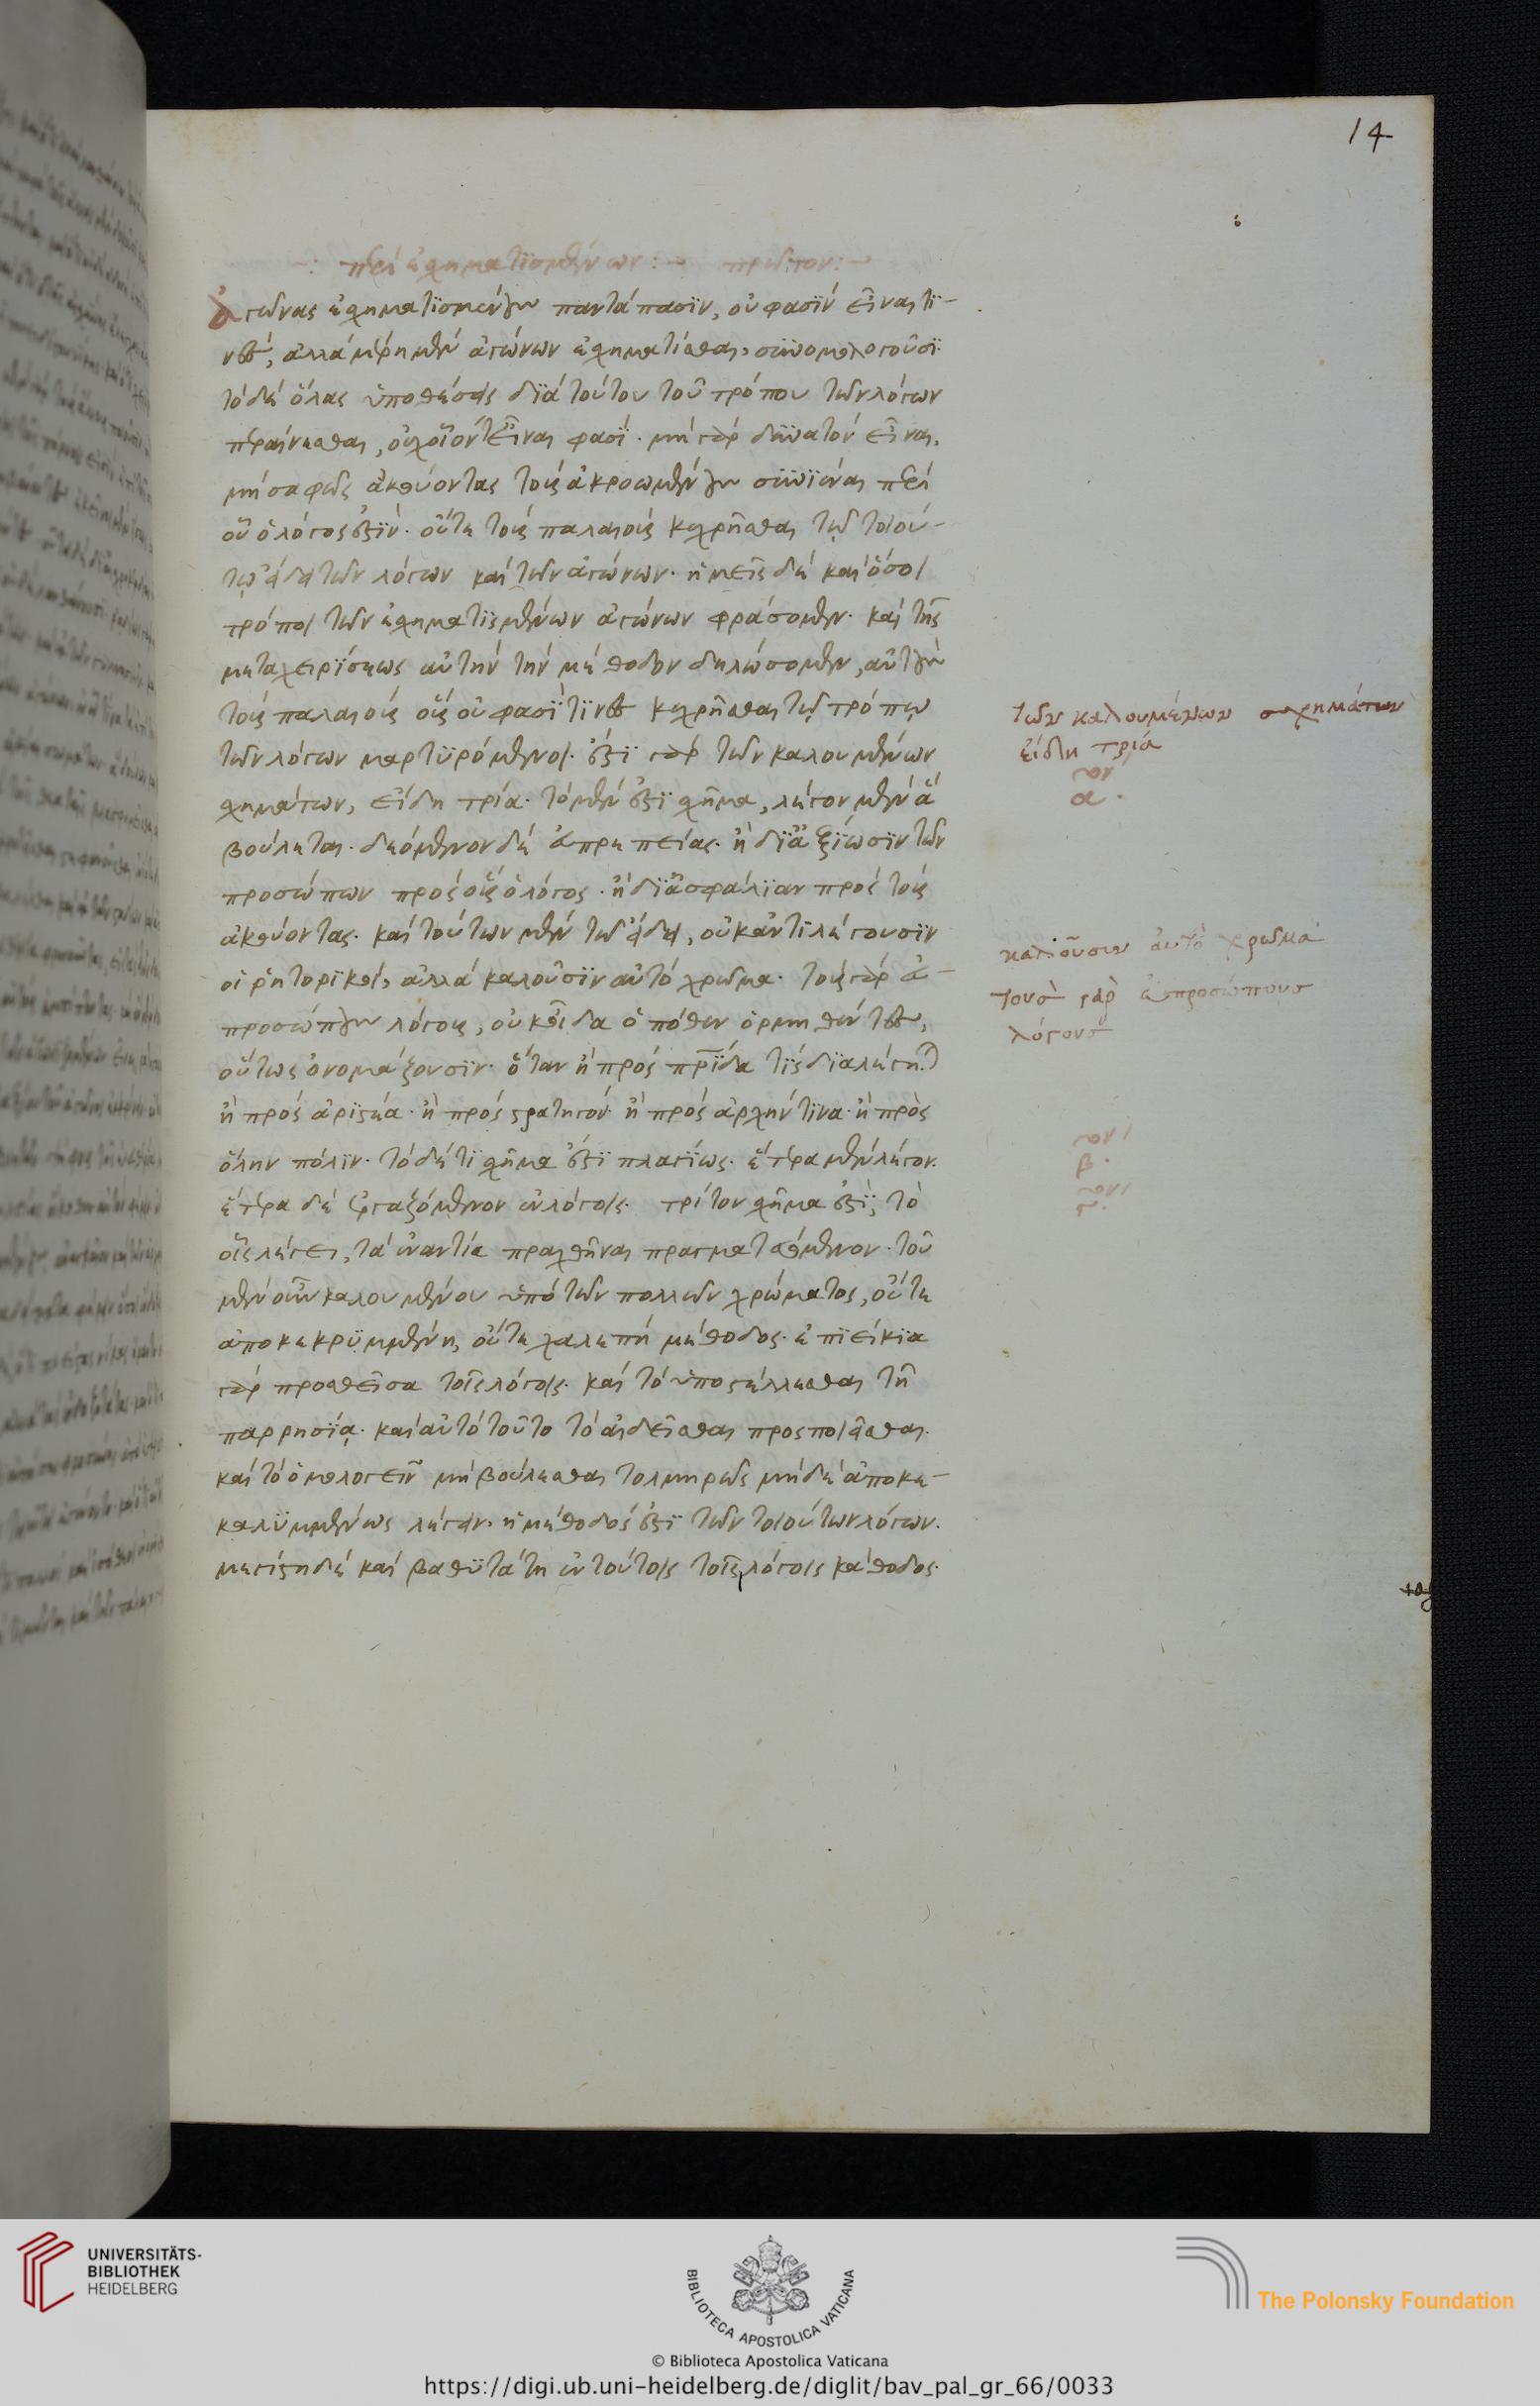 14
περὶ ἐσχηματισμένων: πρῶτον:
ἀγῶνας ἐσχηματισμένους παντάπασιν, οὐ φασὶν εἶναί τι-
νες, ἀλλὰ μέρη μὲν ἀγώνων ἐσχηματίσθαι, συνομολογοῦσι.
τὸ δὲ ὅλας ὑποθέσεις διὰ τούτου τοῦ τρόπου τῶν λόγων
περαίνεσθαι, οὐχ οἷόν τε εἶναί φασι. μὴ γὰρ δυνατὸν εἶναι,
μὴ σαφῶς ἀκούοντας τοὺς ἀκροωμένους συνιέναι περὶ
οὗ ὁ λόγος ἐστὶν. οὔτε τοὺς παλαιοὺς κεχρῆσθαι τῷ τοιού-
τῳ εἴδει τῶν λόγων καὶ τῶν ἀγώνων. ἡμεῖς δὲ καὶ ὅσοι
τρόποι τῶν ἐσχηματισμένων ἀγώνων φράσομεν. καὶ τῆς
μεταχειρίσεως αὐτὴν τὴν μέθοδον δηλώσομεν, αὐτοὺς
τοὺς παλαιοὺς οὓς οὔ φασί τινες κεχρῆσθαι τῷ τρόπῳ
τῶν λόγων μαρτυρόμενοι. ἔστι γὰρ τῶν καλουμένων
σχημάτων, εἴδη τρία. τὸ μὲν ἐστὶ σχῆμα, λέγον μὲν ἃ
βούλεται. δεόμενον δὲ εὐπρεπείας. ἢ δι' ἀξίωσιν τῶν
προσώπων πρὸς οὓς ὁ λόγος. ἢ δι' ἀσφάλιαν πρὸς τοὺς
ἀκούοντας. καὶ τούτων μὲν τῷ εἴδει, οὐκ ἀντιλέγουσιν
οἱ ῥητορικοί, ἀλλὰ καλοῦσιν αὐτὸ χρῶμα. τοὺς γὰρ εὐ-
προσώπους λόγους, οὐκ οἶδα ὁπόθεν ὁρμηθέντες,
οὕτως ὀνομάζουσιν. ὅταν ἢ πρὸς πρίδα τὶς διαλέγηται
ἢ πρὸς ἀριστέα. ἢ πρὸς στρατηγόν. ἢ πρὸς ἀρχήν τινα. ἢ πρὸς
ὅλην πόλιν. τὸ δέ τι σχῆμα ἐστὶ πλαγίως. ἕτερα μὲν λέγον.
ἕτερα δὲ ἐργαζόμενον ἐν λόγοις. τρίτον σχῆμα ἐστὶ, τὸ
οἷς λέγει, τὰ ἐναντία πραχθῆναι πραγματευόμενον. τοῦ
μὲν οὖν καλουμένου ὑπὸ τῶν πολλῶν χρώματος, οὔτε
ἀποκεκρυμμένη, οὔτε χαλεπὴ μέθοδος. ἐπιείκια
γὰρ προσθεῖσα τοῖς λόγοις. καὶ τὸ ὑποστέλλεσθαι τῇ
παρρησίᾳ. καὶ αὐτὸ τοῦτο τὸ αἰδεῖσθαι προσποιεῖσθαι.
καὶ τὸ ὁμολογεῖν μὴ βούλεσθαι τολμηρῶς μηδὲ ἀποκε-
καλυμμένως λέγειν. ἡ μέθοδός ἐστι τῶν τοιούτων λόγων.
μεγίστη δὲ καὶ βαθυτάτη ἐν τούτοις τοῖς λόγοις κάθοδος.
τῶν καλουμένων σχημάτων
εἴδη τρία
ον
α.
καλοῦσιν αὐτὸ χρῶμα
τοὺς γὰρ εὐπροσώπους
λόγους
ον
β.
ον
γ.
UNIVERSITÄTS-
BIBLIOTHEK
HEIDELBERG
BIBLIOTECA APOSTOLICA VATICANA
© Biblioteca Apostolica Vaticana
The Polonsky Foundation
https://digi.ub.uni-heidelberg.de/diglit/bav_pal_gr_66/0033